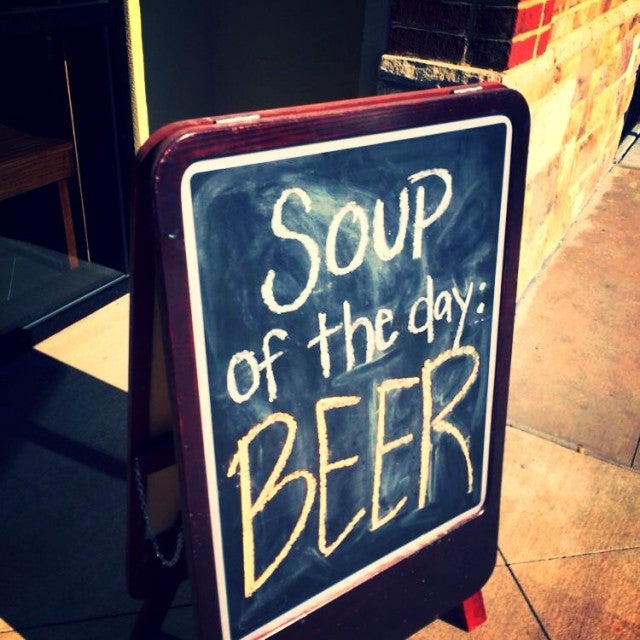 SOUP
of the day:
BEER